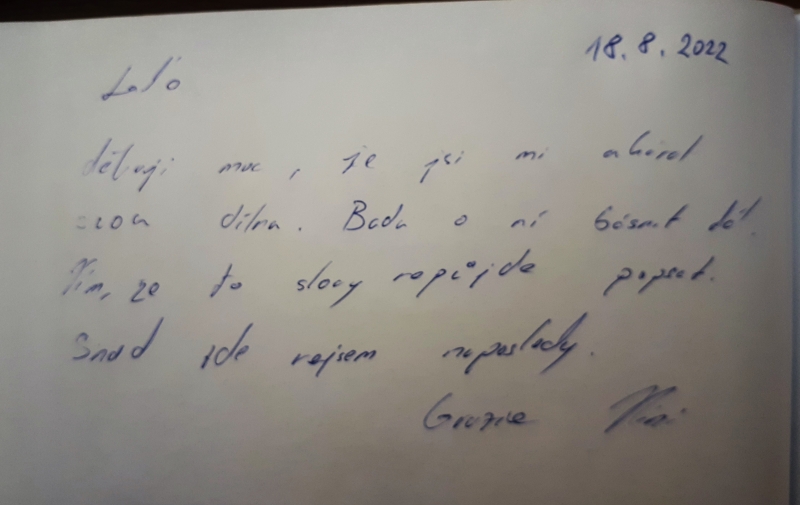 18.8.2022
Laďo
děkuji moc, že jsi mi ukázal
svou dílnu. Budu o ní básnit dál.
Vím, že to slovy nepůjde popsat.
Snad zde nejsem naposledy.
Grazie